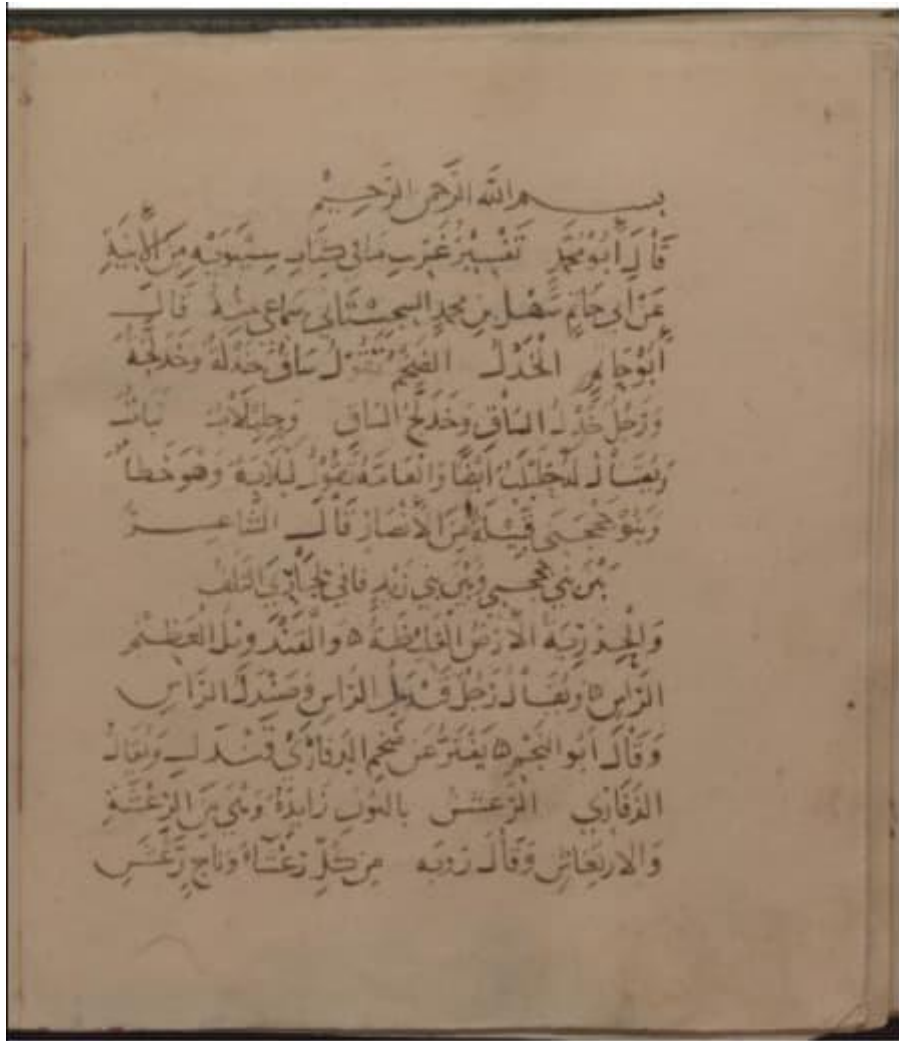 بسم الله الرحمن الرحيم
قال أبو محمد تفسير غريب ما في كتاب سيبويه من الأبنية
عن أبي حاتم سهل بن محمد السجستاني سماعي منه قال
أبو حاتم الخدل الضخم تقول ساق خدلة وخدلجة
ورجل خدل الساق وخدلج الساق وحلبلاب نبات
ويقال له الحلب أيضا والعامة تقول لبلابة وهو خطأ
وبنو جحجبى قبيلة من الأنصار قال الشاعر
بين بني جحجبى وبين بني زيد فأنى لجاري التلف
والحزرية الأرض الغليظة والقندويل العظيم
الرأس ويقال رجل قندل الرأس وصندل الرأس
وقال أبو النجم يفتر عن ضخم الذفارى قندل ويقال
الذفاري الرعشن بالنون زائدة وبني من الرعشة
والارتعاش وقال رؤبة من كل رعشاء وناج رعشن